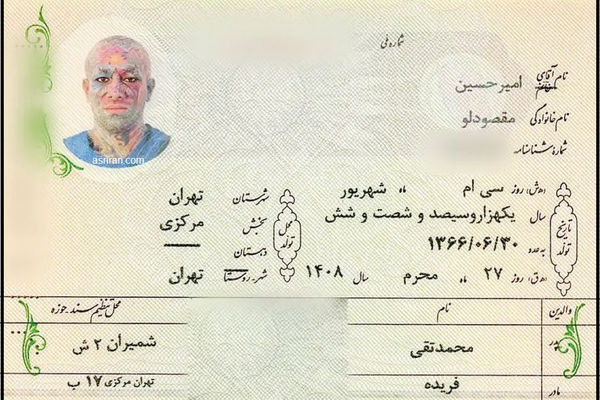 شماره ملی
نام آقای امیرحسین
نام خانوادگی مقصودلو
شماره شناسنامه
تاریخ تولد
ه‍.ش: روز سی ام ماه شهریور
سال یکهزاروسیصد و شصت و شش
به عدد ۱۳۶۶/۰۶/۳۰
ه‍.ق: روز ۲۷ ماه محرم سال ۱۴۰۸
محل تولد
شهرستان تهران
بخش مرکزی
دهستان
شهر-روستا تهران
asriran.com
والدین نام محل تنظیم سند حوزه
پدر محمدتقی شمیران ۲ ش
مادر فریده تهران مرکزی ۱۷ ب